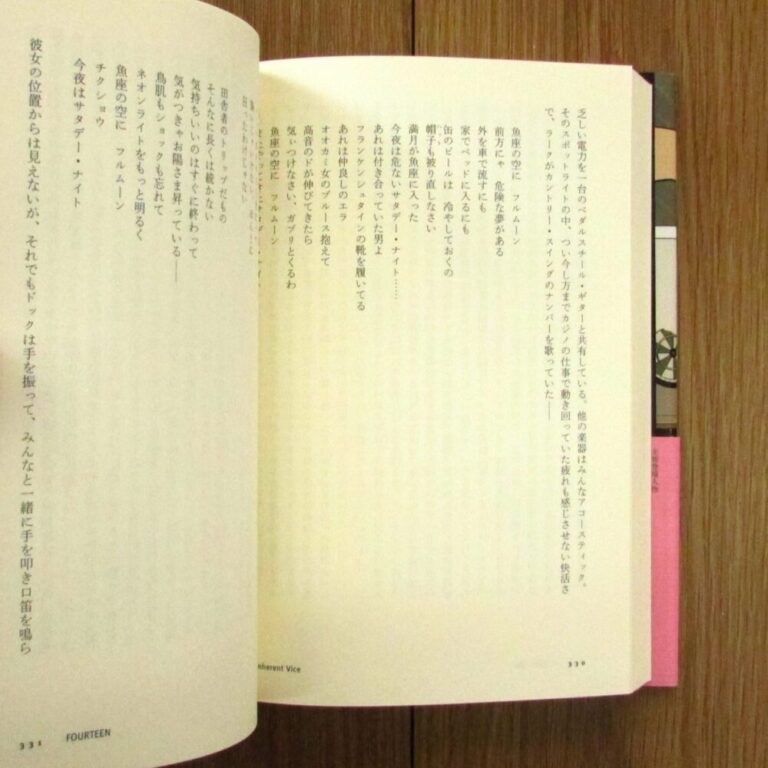 乏しい電力を一台のペダルスチール・ギターと共有している。他の楽器はみんなアコースティック。
そのスポットライトの中、つい今し方までカジノの仕事で動き回っていた疲れも感じさせない快活さ
で、ラークがカントリー・スイングのナンバーを歌っていた——
魚座の空に フルムーン
前方にゃ 危険な夢がある
外を車で流すにも
家でベッドに入るにも
缶のビールは 冷やしておくの
帽子も被り直しなさい
満月が魚座に入った
今夜は危ないサタデー・ナイト……
あれは付き合っていた男よ
フランケンシュタインの靴を履いてる
あれは仲良しのエラ
オオカミ女のブルース抱えて
高音のドが伸びてきたら
気ぃつけなさい、ガブリとくるわ
魚座の空に フルムーン
Inherent Vice
330
田舎者のトリップだもの
そんなに長くは続かない
気持ちいいのはすぐに終わって
気がつきゃお陽さま昇っている——
鳥肌もショックも忘れて
ネオンライトをもっと明るく
魚座の空に フルムーン
チクショウ
今夜はサタデー・ナイト
彼女の位置からは見えないが、それでもドックは手を振って、みんなと一緒に手を叩き口笛を鳴ら
331 FOURTEEN